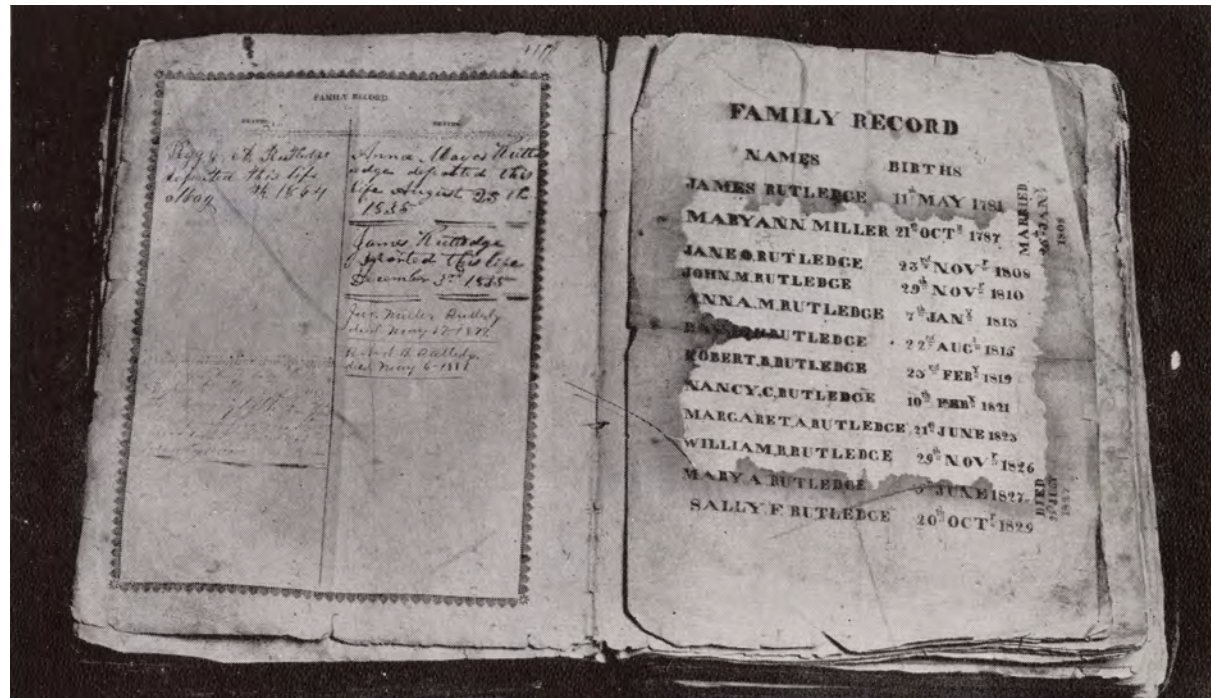 FAMILY RECORD
DEATHS
DEATHS
Peggy A. Rutledge
departed this life
1864
Anna Mayes Rutt
edges departed this
life August 25th
1835
James Ruttedge
departed this life
December 3rd 1835
Miller Rutledge
died May 17-1872
Robert B. Rutledge
died May 6-1881
FAMILY RECORD
NAMES BIRTHS
JAMES RUTLEDGE 11th MAY 1781
MARYANN MILLER 21st OCTr 1787
MARRIED
26 JANY
1808
JANE O. RUTLEDGE 23rd NOVr 1808
JOHN.M.RUTLEDGE 29th NOVr 1810
ANNA.M.RUTLEDGE 7th JANy 1813
RUTLEDGE 22nd AUGt 1815
ROBERT.B.RUTLEDGE 23rd FEBy 1819
NANCY.C.RUTLEDGE 10th FEBy 1821
MARGARET.A.RUTLEDGE 21st JUNE 1823
WILLIAM.B.RUTLEDGE 29th NOVr 1826
MARY A RUTLEDGE JUNE 1827.
DIED
JULY
1827
SALLY.F.RUTLEDGE 20th OCTr 1829